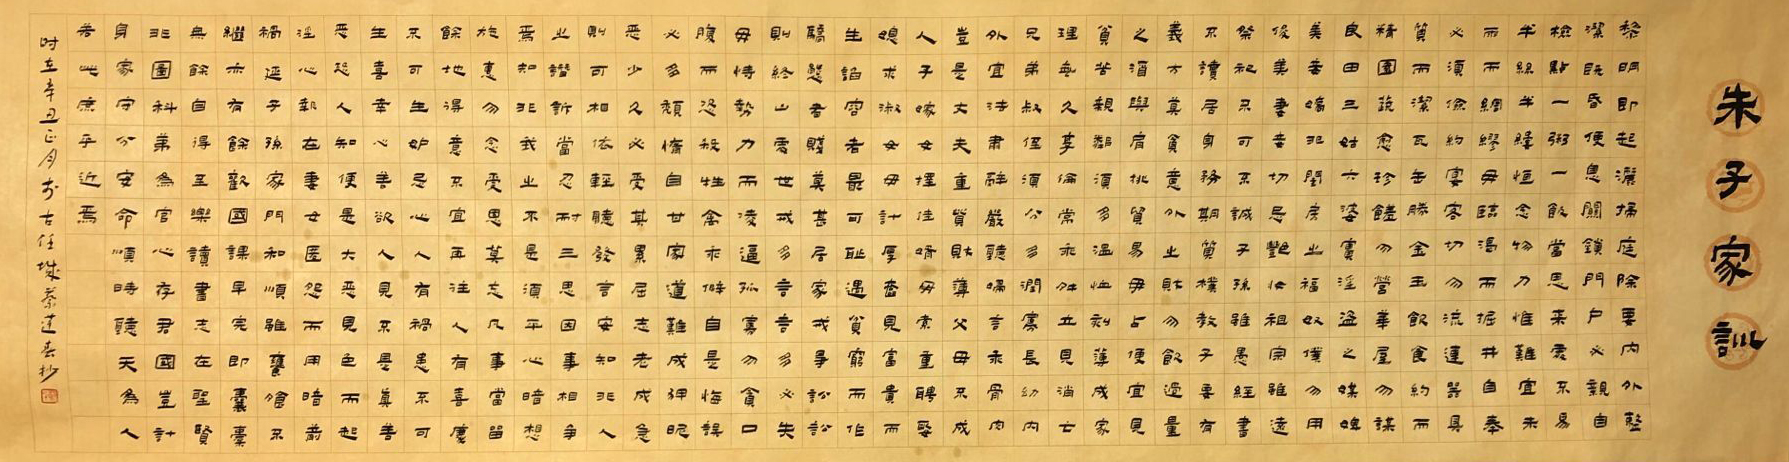 朱子家訓
黎明即起灑掃庭除要內外整
潔既昏便息關鎖門戶必親自
檢點一粥一飯當思來處不易
半絲半縷恒念物力惟難宜未
雨而綢繆毋臨渴而掘井自奉
必須儉約宴客切勿流連器具
質而潔瓦缶勝金玉飲食約而
精園蔬愈珍饈勿營華屋勿謀
良田三姑六婆實淫盜之媒婢
美妾嬌非閨房之福奴僕勿用
俊美妻妾切忌艷妝祖宗雖遠
祭祀不可不誠子孫雖愚經書
不讀居身務期質樸教子要有
義方莫貪意外之財勿飲過量
之酒與肩挑貿易毋占便宜見
貧苦親鄰須多溫恤刻薄成家
理無久享倫常乖舛立見消亡
兄弟叔侄須分多潤寡長幼內
外宜法肅辭嚴聽婦言乖骨肉
豈是丈夫重貲財薄父母不成
人子嫁女擇佳婿毋索重聘娶
媳求淑女毋計厚奩見富貴而
生諂容者最可恥遇貧窮而作
驕態者賤莫甚居家戒爭訟訟
則終凶處世戒多言言多必失
毋恃勢力而凌逼孤寡勿貪口
腹而恣殺牲禽乖僻自是悔誤
必多頹惰自甘家道難成狎昵
惡少久必受其累屈志老成急
則可相依輕聽發言安知非人
之譖訴當忍耐三思因事相爭
焉知非我之不是須平心暗想
施惠勿念受恩莫忘凡事當留
餘地得意不宜再往人有喜慶
不可生妒忌心人有禍患不可
生喜幸心善欲人見不是真善
惡恐人知便是大惡見色而起
淫心報在妻女匿怨而用暗箭
禍延子孫家門和順雖饔飧不
繼亦有餘歡國課早完即囊橐
無餘自得至樂讀書志在聖賢
非圖科第為官心存君國豈計
身家守分安命順時聽天為人
若此庶乎近焉
時在辛丑正月於古任城蔡蓮春抄